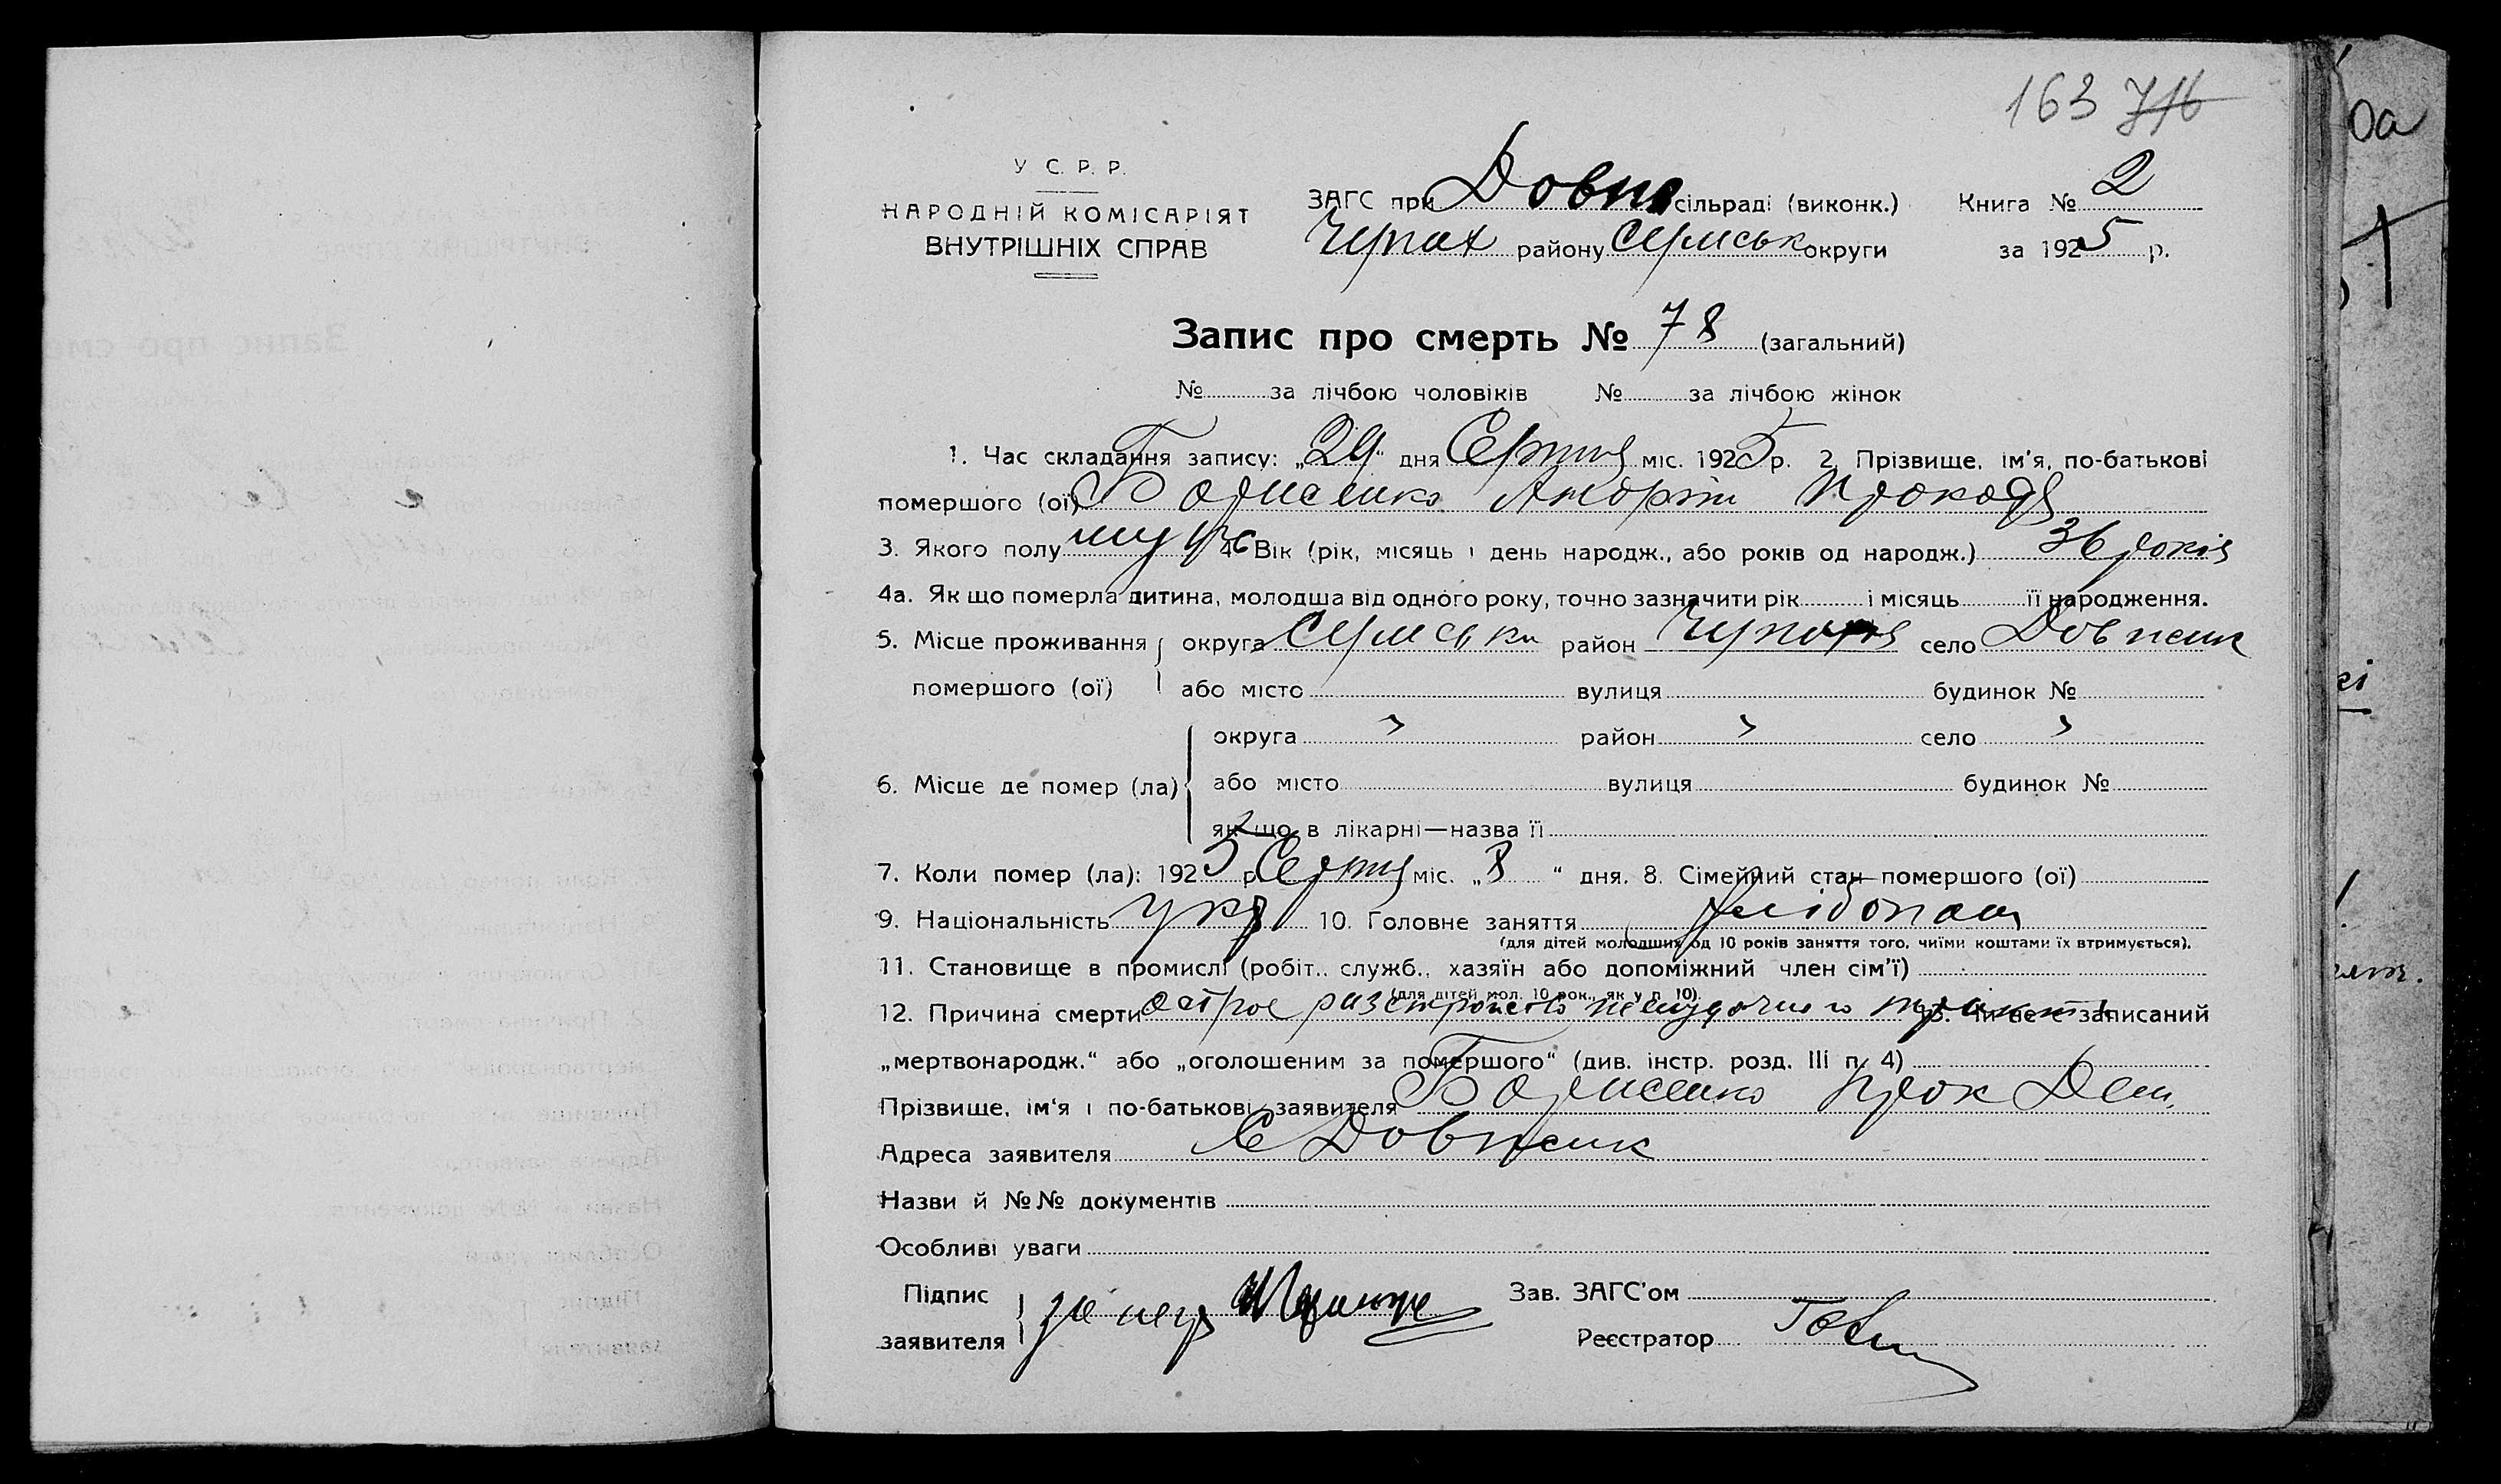 163 716
У С. Р. Р.
НАРОДНІЙ КОМІСАРІЯТ
ВНУТРІШНІХ СПРАВ
ЗАГС при Довж сільраді (виконк.)
району Сумськ округи
Книга № 2
за 1925 р.
Запис про смерть № 78 (загальний)
№ за лічбою чоловіків № за лічбою жінок
1. Час складання запису: „29“ дня Серпня міс. 1925 р. 2. Прізвище, ім'я, по-батькові
помершого (ої) Прокоф
3. Якого полу муж 4. Вік (рік, місяць і день народж., або років од народж.) 36 років
4а. Як що померла дитина, молодша від одного року, точно зазначити рік і місяць її народження.
5. Місце проживання округа Сумськ район село
помершого (ої) або місто вулиця будинок №
округа " район " село "
6. Місце де помер (ла) або місто вулиця будинок №
як що в лікарні—назва її
7. Коли помер (ла): 1925 р. Серпня міс. „8“ дня. 8. Сімейний стан помершого (ої)
9. Національність укр 10. Головне заняття хлібопаш
(для дітей молодших од 10 років заняття того, чиїми коштами їх втримується).
11. Становище в промислі (робіт., служб., хазяїн або допоміжний член сім'ї)
(для дітей мол. 10 рок., як у п. 10).
12. Причина смерти острое разстройство желудочно тракта 13. Чи не є записаний
„мертвонародж.“ або „оголошеним за помершого“ (див. інстр. розд. III п. 4)
Прізвище, ім'я і по-батькові заявителя Прок Дем.
Адреса заявителя С
Назви й №№ документів
Особливі уваги
Підпис
заявителя
Зав. ЗАГС'ом
Реєстратор